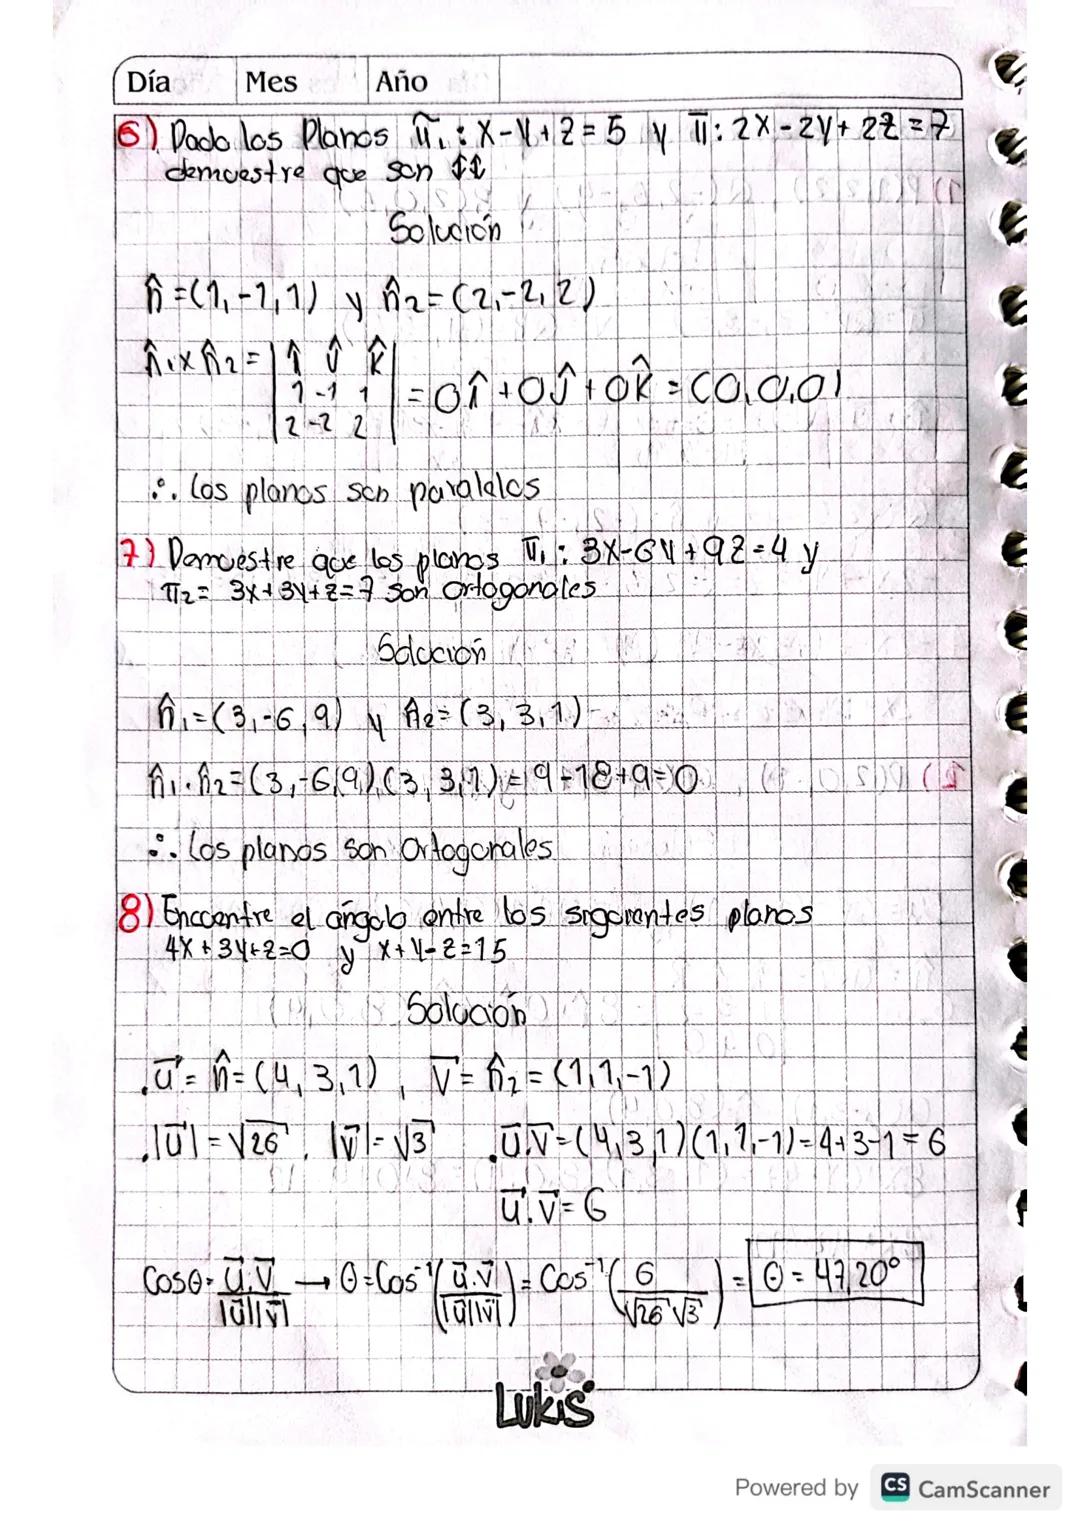 Día Mes Año
6) Dado los Planos π₁: x-y+z=5 y π: 2x-2y+2z=7
demuestre que son ⇕
Solución
n̂=(1,-1,1) y n̂2=(2,-2,2)
n̂1xn̂2= | î ĵ k̂ |
1 -1 1
2 -2 2
= 0î+0ĵ+0k̂ = (0,0,0)
∴ Los planos son paralelos
7) Demuestre que los planos π₁: 3x-6y+9z=4 y
π2= 3x+3y+z=7 son ortogonales
Solución
n̂1=(3,-6,9) y n̂2=(3,3,1)
n̂1.n̂2=(3,-6,9).(3,3,1)=9-18+9=0
∴ Los planos son Ortogonales
8) Encuentre el ángulo entre los siguientes planos
4x+3y+z=0 y x+y-z=15
Solución
.u⃗= n̂=(4,3,1), v⃗= n̂2=(1,1,-1)
.|u⃗|=√26, |v⃗|=√3 .u⃗.v⃗=(4,3,1)(1,1,-1)=4+3-1=6
u⃗.v⃗=6
Cosθ= u⃗.v⃗/|u⃗||v⃗| → θ=Cos⁻¹(u⃗.v⃗/|u⃗||v⃗|)= Cos⁻¹(6/√26 √3)= θ=47,20°
Lukis
Powered by CS CamScanner